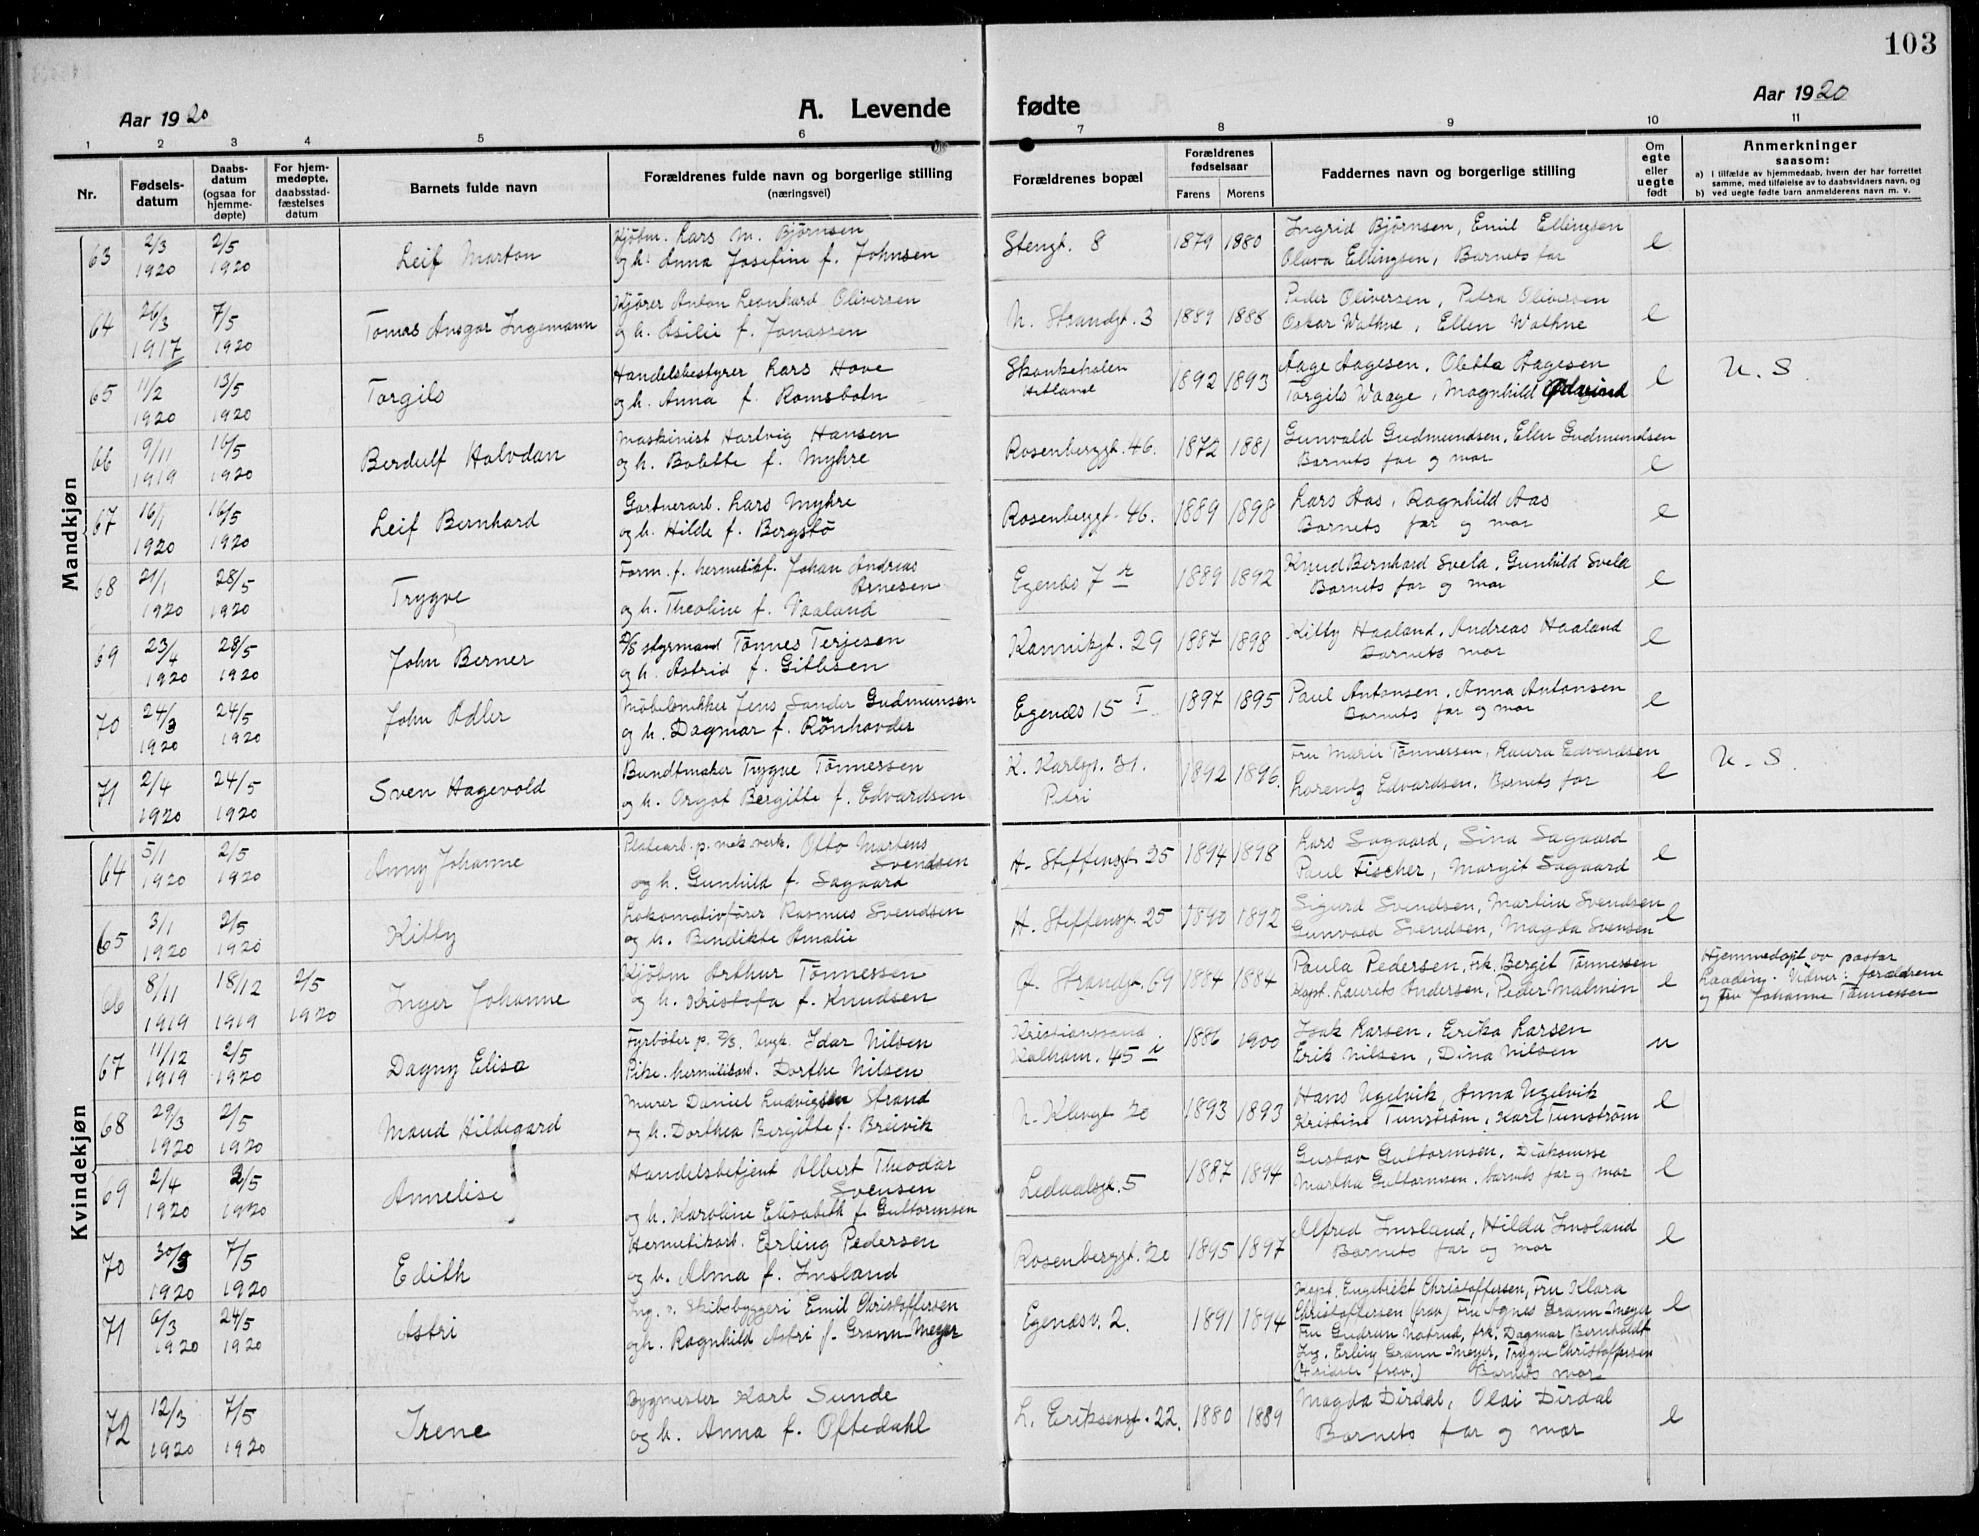 103
Aar 1920
A. Levende fødte
Aar 1920
1 2 3 4 5 6 7 8 9 10 11
Nr.
Fødsels-
datum
Daabs-
datum
(ogsaa for
hjemme-
døpte)
For hjem-
medøpte,
daabsstad-
fæstelses
datum
Barnets fulde navn
Forældrenes fulde navn og borgerlige stilling
(næringsvei)
Forældrenes bopæl
Forældrenes
fødselsaar
Farens Morens
Faddernes navn og borgerlige stilling
Om
egte
eller
uegte
født
Anmerkninger
saasom:
a) i tilfælde av hjemmedaab, hvem der har forrettet
samme, med tilføielse av to daabsvidners navn, og
b) ved uegte fødte barn anmelderens navn m. v.
Mandkjøn
63 2/3 2/5 Kjöbm. Lars M. Björnsen Stengt. 8 1879 1880 Ingrid Björnsen, Emil Ellingsen e
1920 1920 Leif Marton og h. Anna Josefine f. Johnsen Olava Ellingsen, Barnets far
64 26/3 7/5 Kjörer Anton Leonhard Oliversen N. Strandgt. 3 1889 1888 Peder Oliversen, Petra Oliversen e
1917 1920 Tomas Ansgar Ingemann og h. Asilie f. Jonassen Oskar Wathne, Ellen Wathne
65 11/2 13/5 Handelsbestyrer Lars Hove Skankeholen 1892 1893 Aage Aagesen, Oletta Aagesen e U. S.
1920 1920 Torgils og h. Anna f. Ramsbotn Hetland Torgils Waage, Magnhild
66 9/11 16/5 Maskinist Hartvig Hansen Rosenberggt. 46. 1872 1881 Gunvald Gudmundsen, Ellen Gudmundsen
1919 1920 Berdulf Halvdan og h. Bolette f. Myhre Barnets far og mor e
67 16/1 16/5 Gartnerarb. Lars Myhre Rosenberggt. 46. 1889 1898 Lars Aas, Ragnhild Aas e
1920 1920 Leif Bernhard og h. Hilde f. Bergstö Barnets far og mor
68 21/1 28/5 Form. f. hermetikf. Johan Andreas Egenæs 7 r 1889 1892 Knud Bernhard Svela, Gunhild Svela e
1920 1920 Trygve Arnesen Barnets far og mor
og h. Theoline f. Vaaland
69 23/4 28/5 D/S styrmand Tönnes Terjesen Kannikgt. 29 1887 1898 Kitty Haaland, Andreas Haaland e
1920 1920 John Berner og h. Astrid f. Gitlesen Barnets mor
70 24/3 24/5 Möbelsnekker Jens Sander Gudmunsen Egenæs 15 I 1897 1895 Paul Antonsen, Anna Antonsen e
1920 1920 John Adler og h. Dagmar f. Rönhovder Barnets far og mor
71 2/4 24/5 Bundtmaker Trygve Tönnessen K. Karlsgt. 31. 1892 1896. Fru Marie Tönnessen, Laura Edvardsen e U. S.
1920 1920 Sven Hagevold og h. Orgot Bergitte f. Edvardsen Petri Lorentz Edvardsen, Barnets far
Kvindekjøn
64 5/1 2/5 Platearb. p. mek. verk. Otto Martens A. Steffensgt. 25 1894 1898 Lars Sagaard, Sina Sagaard e
1920 1920 Anny Johanne Svendsen Paul Fischer, Margit Sagaard
og h. Gunhild f. Sagaard
65 3/1 2/5 Lokomotivförer Rasmus Svendsen A. Steffensgt. 25 1890 1892 Sigurd Svendsen, Martine Svendsen e
1920 1920 Kitty og h. Bendikte Amalie Gunvald Svendsen, Magda Svensen
66 8/11 18/12 2/5 Kjöbm Arthur Tönnessen Ö. Strandgt. 69 1884 1884 Paula Pedersen, Frk. Bergit Tönnessen e Hjemmedöpt av pastor
1919 1919 1920 Inger Johanne og h. Kristofa f. Knudsen Kapt. Laurits Andersen, Peder Malmin Laading. Vidner: forældrene
og fru Johanne Tönnessen
67 11/12 2/5 Fyrböter p. D/S. Idar Nilsen Kristianssand 1886 1900 Isak Larsen, Erika Larsen u
1919 1920 Dagny Elisa Pike hermetikarb. Dorthe Nilsen Kalham. 45 i Erik Nilsen, Dina Nilsen
68 29/3 2/5 Murer Daniel Ludvigsen Strand N. Klevgt 20 1893 1893 Hans Ugelvik, Anna Ugelvik e
1920 1920 Maud Hildegard og h. Dorthea Bergitte f. Breivik Kristine Tunström, Karl Tunström
69 2/4 2/5 Handelsbetjent Albert Theodar Ledaalsgt. 5 1887 1894 Gustav Guttormsen, Diakonisse e
1920 1920 Annelise Svensen Martha Guttormsen, barnets far og mor
og h. Karoline Elisabeth f. Guttormsen
70 30/3 7/5 Hermetikarb. Erling Pedersen Rosenberggt. 20 1895 1897 Alfred Imsland, Hilda Imsland e
1920 1920 Edith og h. Alma f. Imsland Barnets far og mor
71 6/3 24/5 Ing. v. Skibsbyggeri Emil Christoffersen Egenæsv. 2. 1891 1894 Kapt. Engebrekt Christoffersen, Fru Klara e
1920 1920 Astri og h. Ragnhild Astri f. Grann-Meyer Christoffersen (frav.) Fru Agnes Grann-Meyer
Fru Gudrun Natrud, frk. Dagmar Bernholdt
Ing. Erling Grann-Meyer, Trygve Christoffersen
(4 sidste frav.) Barnets mor
72 12/3 7/5 Bygmester Karl Sunde L. Eriksensgt. 22. 1880 1889 Magda Dirdal, Olai Dirdal e
1920 1920 Irene og h. Anna f. Oftedahl Barnets far og mor